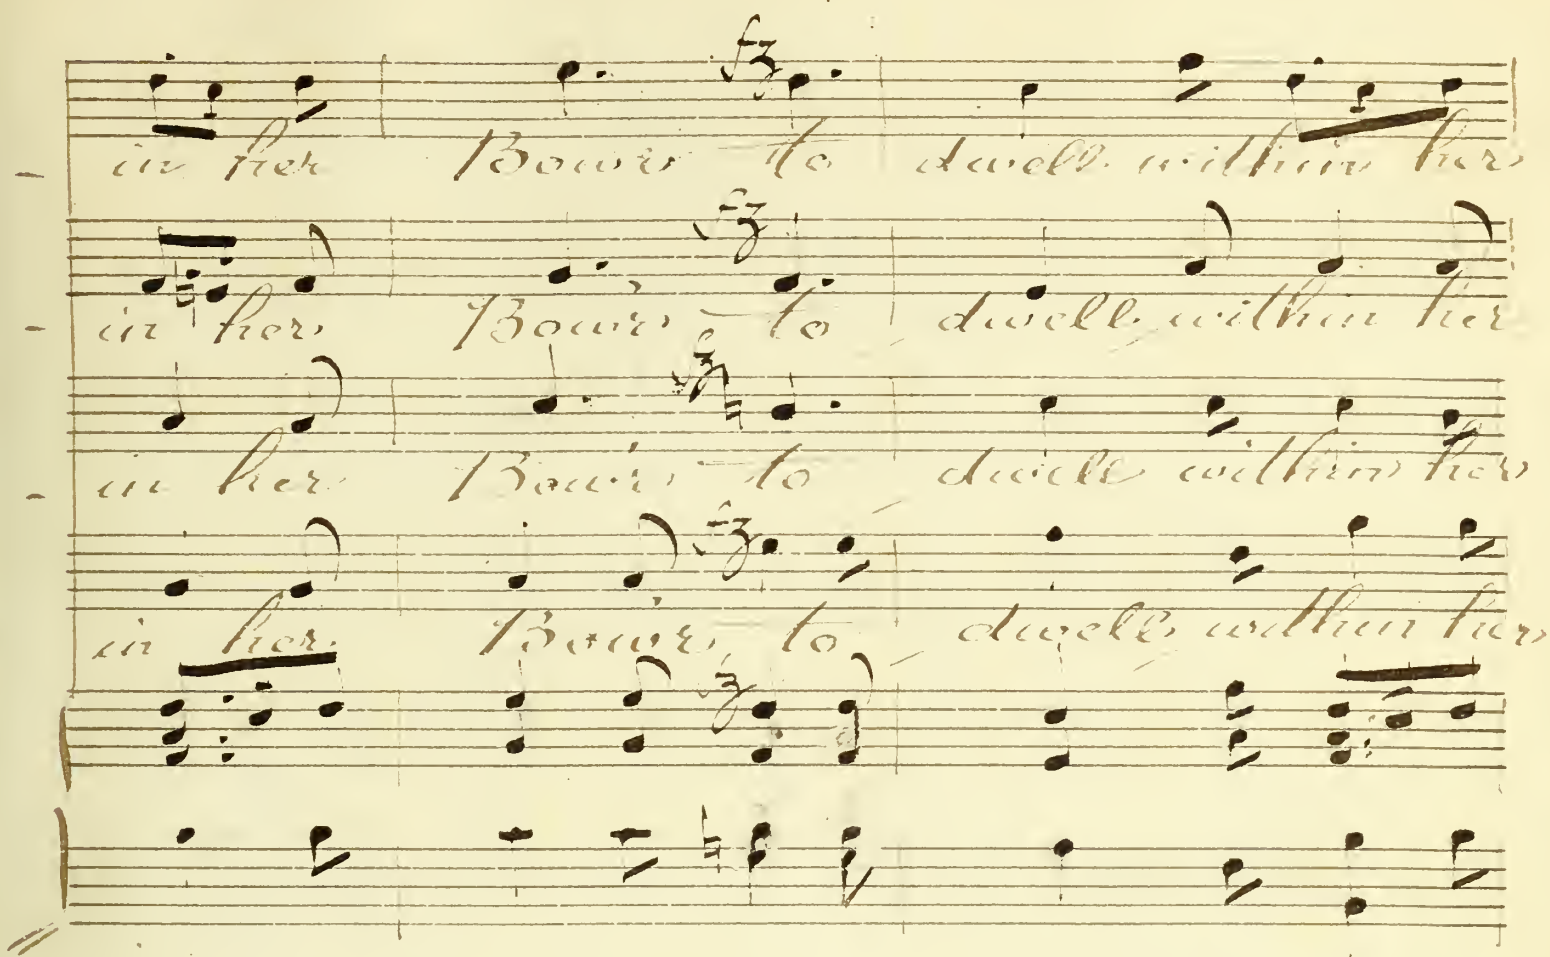 fz
in her Bow'r to dwell within her
fz
in her Bow'r - to dwell within her
fz
in her Bow'r - to dwell within her
fz
in her Bow'r to dwell within her
fz